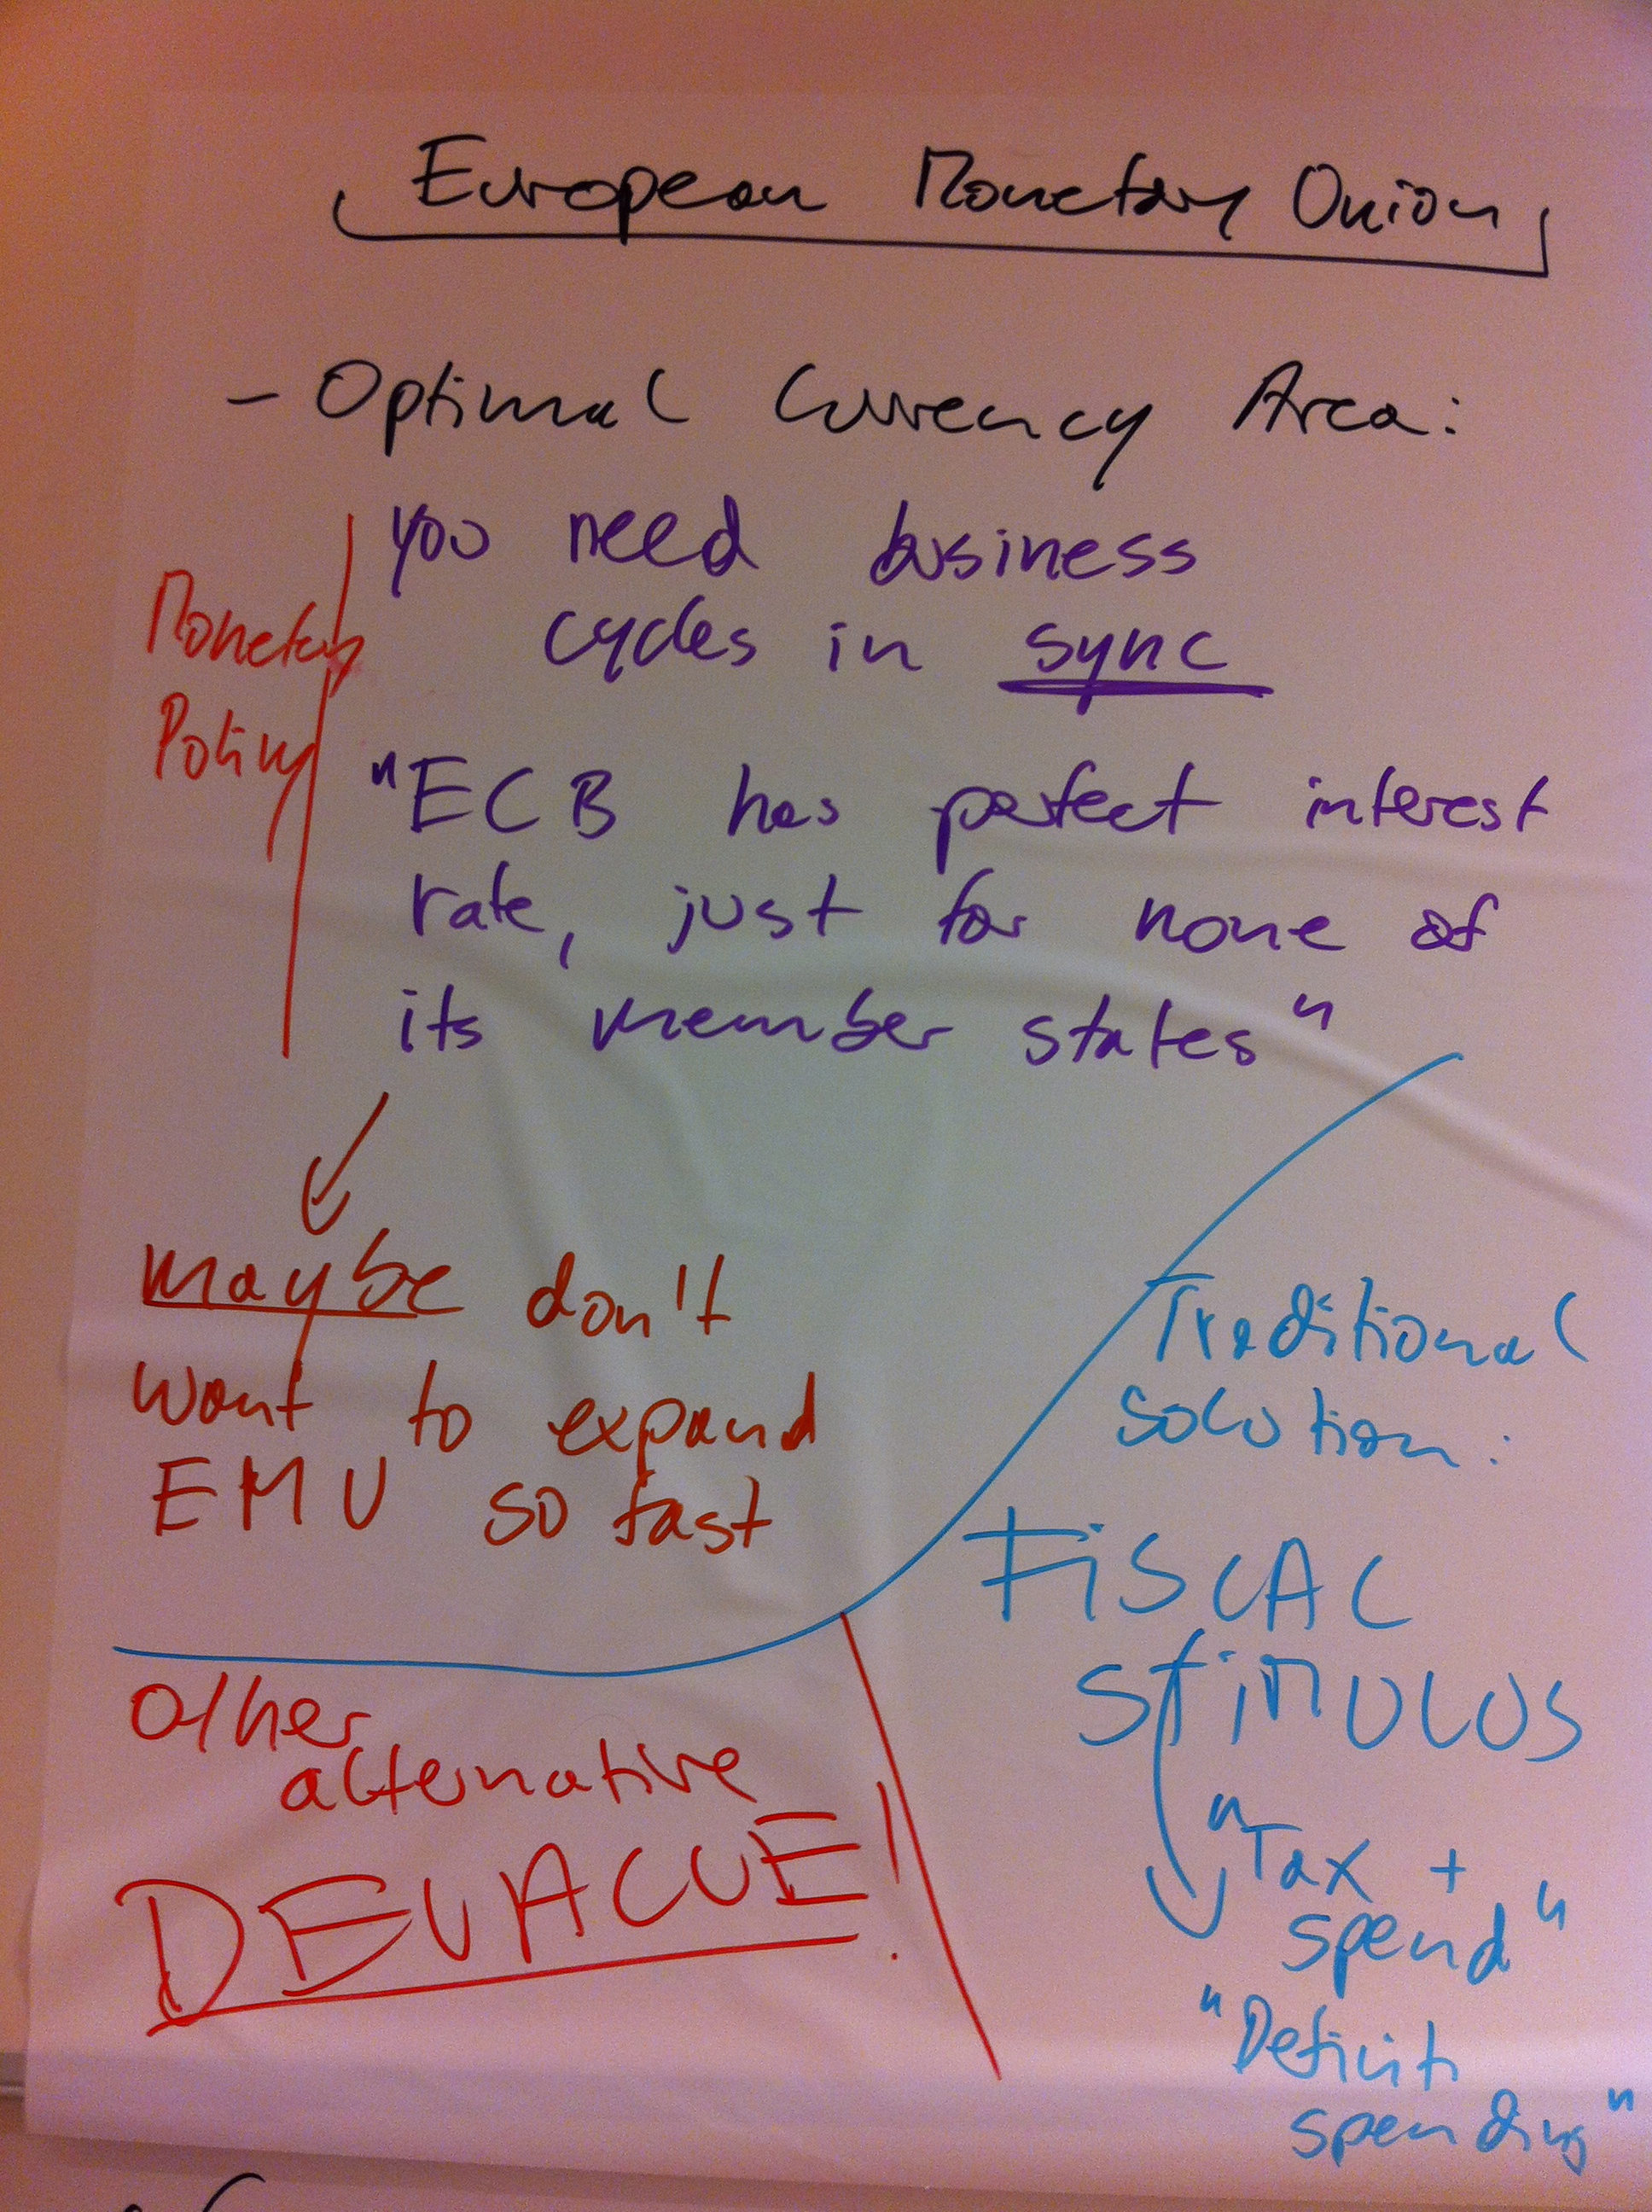 European Monetary Union
- Optimal Currency Area:
you need business
cycles in sync
Monetary
Policy
"ECB has perfect interest
rate, just for none of
its member states"
maybe don't
want to expand
EMU so fast
Traditional
solution:
FISCAL
STIMULUS
"Tax +
spend"
"Deficit
spending"
Other
alternative
DEVALUE!